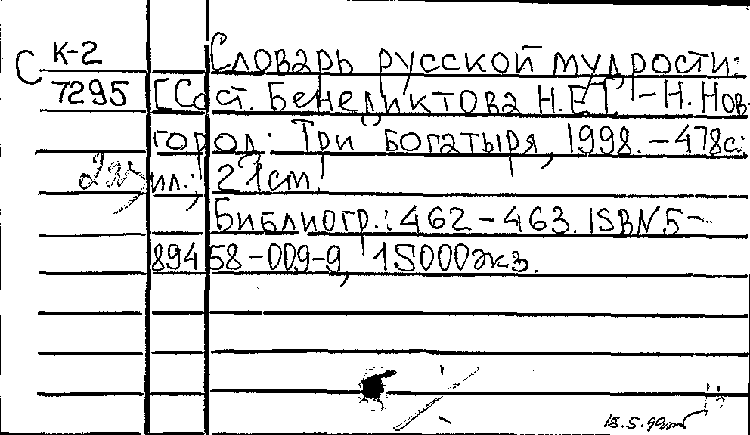 С К-2 Словарь русской мудрости:
7295 [Сост. Бенедиктова Н.Е.] - Н. Нов
город: Три богатыря, 1998. - 478с:
2эк ил.; 21см.
Библиогр.: 462-463. ISBN 5-
89458-009-9, 15000экз.
18.5.99г